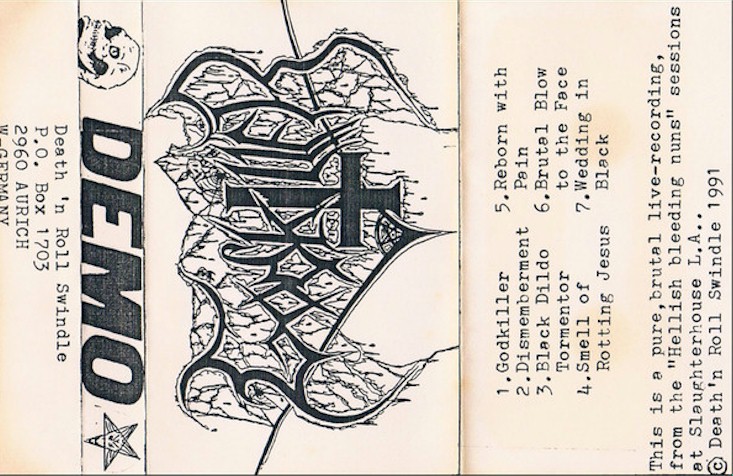 Death 'n Roll Swindle
P.O. Box 1703
2960 AURICH
W-GERMANY
DEMO
1.Godkiller
2.Dismemberment
3.Black Dildo
Tormentor
4.Smell of
Rotting Jesus
5.Reborn with
Pain
6.Brutal Blow
to the Face
7.Wedding in
Black
This is a pure,brutal live-recording,
from the "Hellish bleeding nuns" sessions
at Slaughterhouse L.A..
© Death'n Roll Swindle 1991